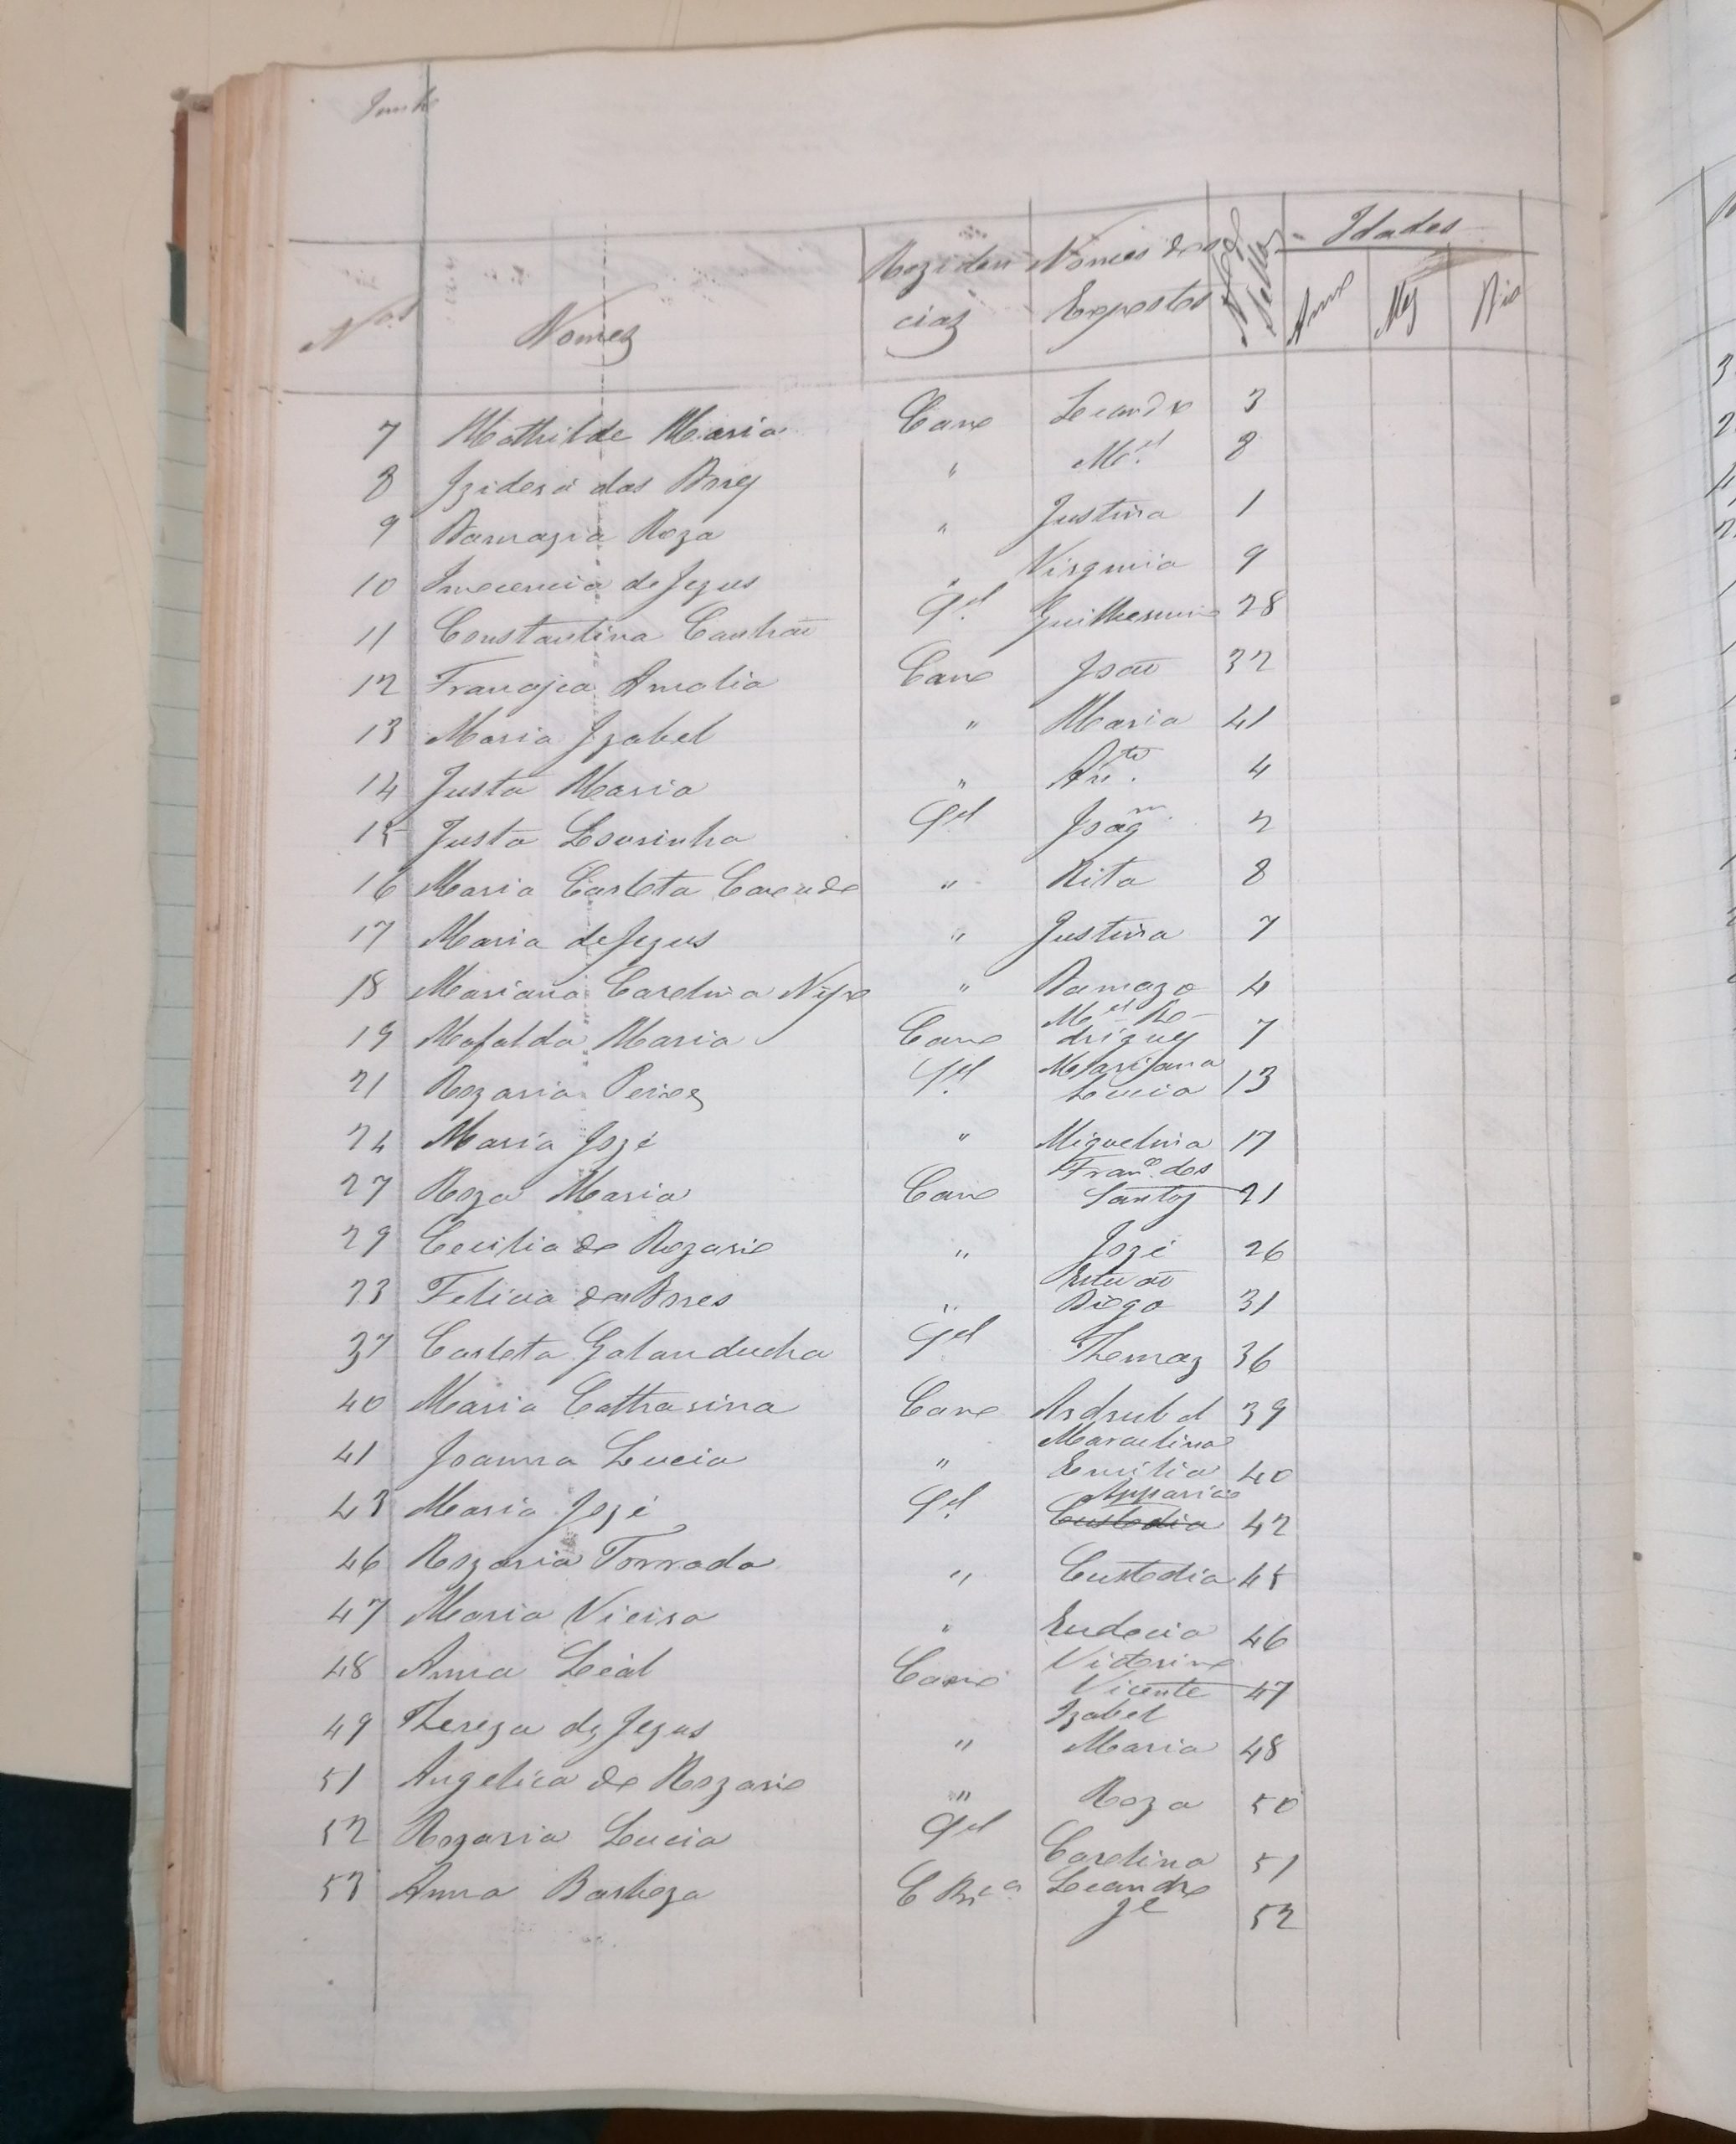 Junho
Nos Nomes Reziden Nomes dos Nos dos Sellos Idades
cias Expostos Anno Mez Dia
7 Mathilde Maria Cano Leandro 3
8 Izidora das Dores " Mel 8
9 Damazia Roza " Justina 1
10 Innocencia de Jezus " Virginia 9
11 Constantina Canhão Gel Guilhermina 28
12 Francisca Amalia Cano João 32
13 Maria Izabel " Maria 41
14 Justa Maria " Anto 4
15 Justa Lourinha Gel Joaqm 2
16 Maria Carlota " Rita 8
17 Maria de Jezus " Justina 7
18 Mariana Carolina " Damazo 4
19 Mafalda Maria Cano Mel Ro-
drigues 7
21 Rozaria Peires Gel Marianna
Lucia 13
24 Maria Jozé " Miguelina 17
27 Roza Maria Cano Franco dos
Santos 21
29 Cecilia do Rozario " Jozé 26
33 Felicia das Dores " Estevão
Diogo 31
37 Carlota Galanducha Gel Thomaz 36
40 Maria Catharina Cano Asdrubal 39
41 Joanna Lucia " Marcelina
Emilia 40
43 Maria Jozé Gel Apparicio
Custodia 42
46 Rozaria Torrada " Custodia 45
47 Maria Vieira " Eudocia 46
48 Anna Leal Cano Victorino
Vicente 47
49 Thereza de Jezus " Izabel
Maria 48
51 Angelica do Rozario " Roza 50
52 Rozaria Lucia Gel Carolina 51
53 Anna Barboza C Bca Leandro
Jé 52